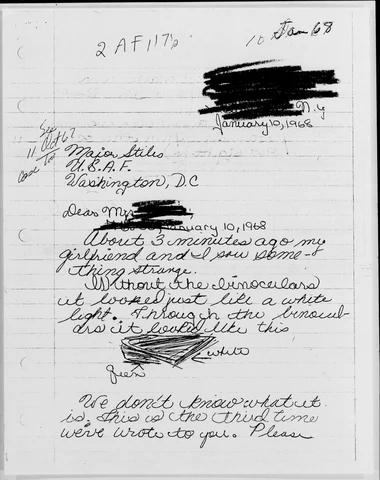 10 Jan 68
2 AF 1176
N.Y
January 10, 1968
See
11 Oct 67
Case To
Major Stiles
U.S.A.F.
Washington, D.C
Dear Mr.
January 10, 1968
About 3 minutes ago my
girlfriend and I saw some-
thing strange.
Without the binoculars
it looked just lik a white
light. Through the binocul-
ars it looked like this
white
green
We don't know what it
is. This is the third time
we've wrote to you. Please